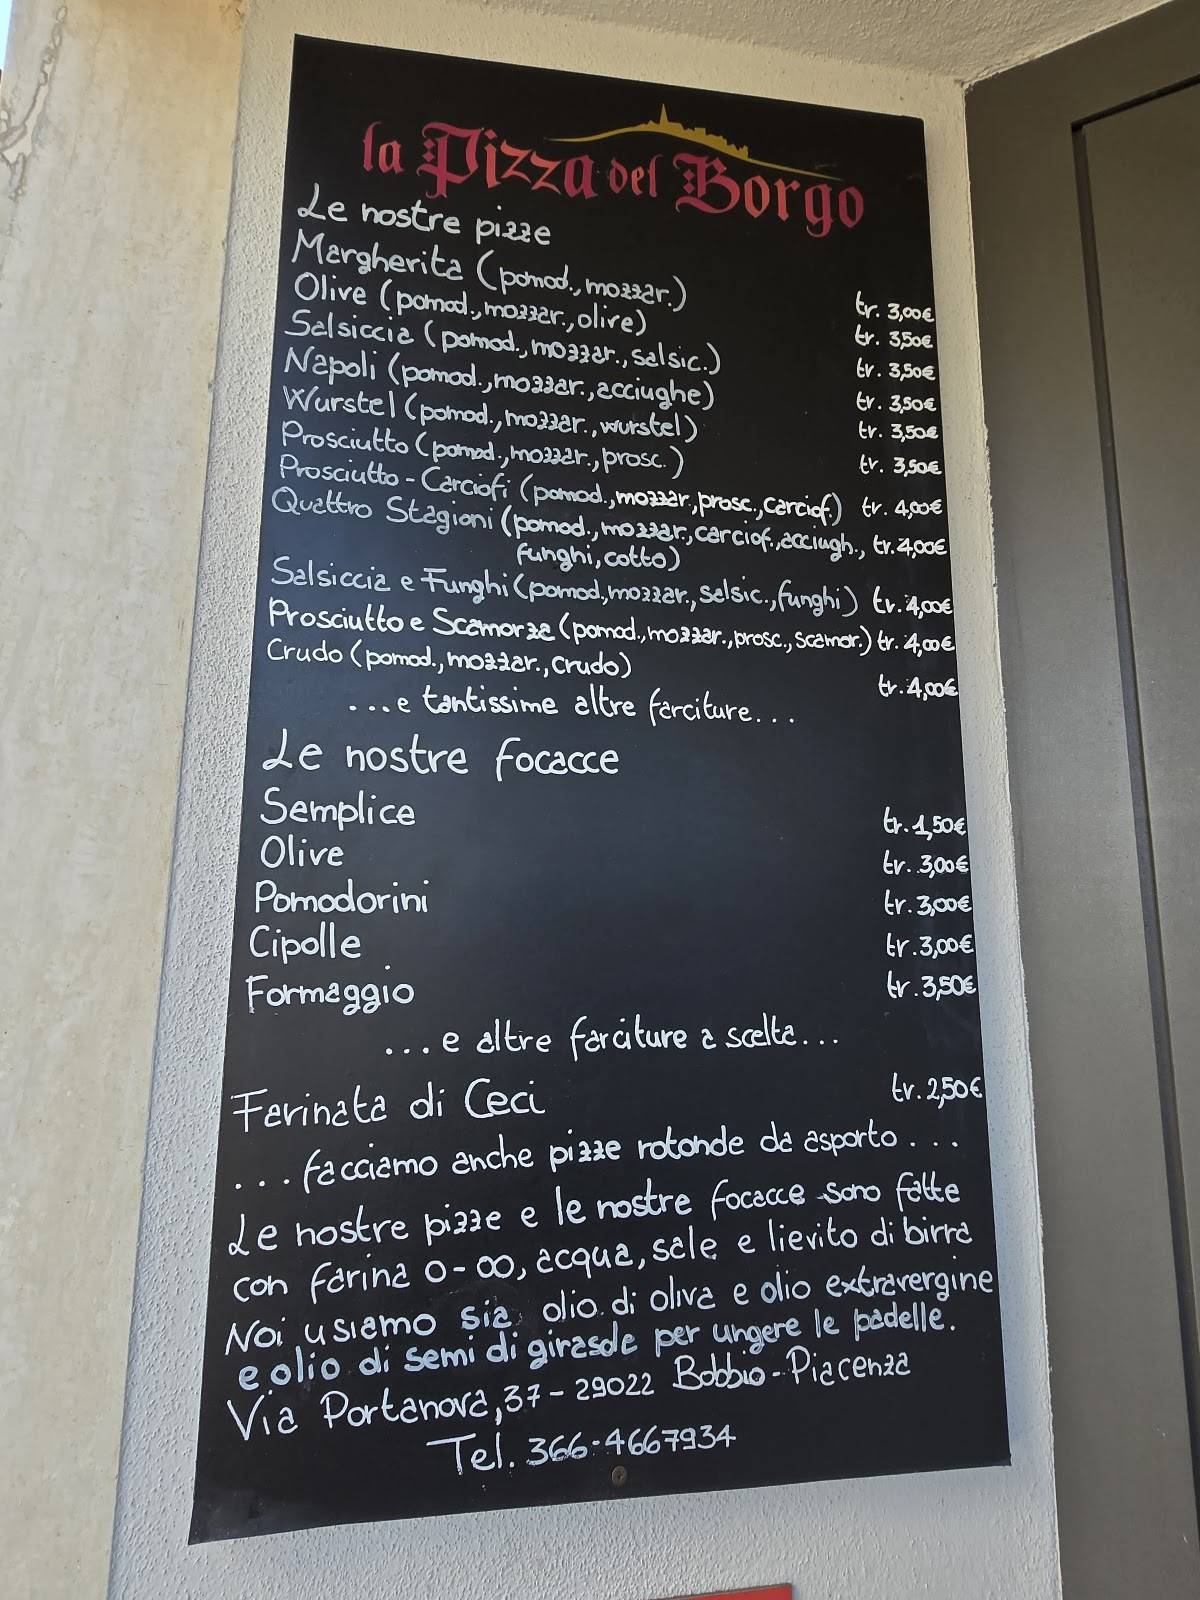 la Pizza del Borgo
Le nostre pizze
Margherita (pomod., mozzar.) tr. 3,00€
Olive (pomod., mozzar., olive) tr. 3,50€
Salsiccia (pomod., mozzar., salsic.) tr. 3,50€
Napoli (pomod., mozzar., acciughe) tr. 3,50€
Wurstel (pomod., mozzar., wurstel) tr. 3,50€
Prosciutto (pomod., mozzar., prosc.) tr. 3,50€
Prosciutto - Carciofi (pomod., mozzar., prosc., carciof.) tr. 4,00€
Quattro Stagioni (pomod., mozzar., carciof., acciugh., tr. 4,00€
funghi, cotto)
Salsiccia e Funghi (pomod., mozzar., salsic., funghi) tr. 4,00€
Prosciutto e Scamorza (pomod., mozzar., prosc., scamor.) tr. 4,00€
Crudo (pomod., mozzar., crudo) tr. 4,00€
...e tantissime altre farciture...
Le nostre focacce
Semplice tr. 1,50€
Olive tr. 3,00€
Pomodorini tr. 3,00€
Cipolle tr. 3,00€
Formaggio tr. 3,50€
...e altre farciture a scelta...
Farinata di Ceci tr. 2,50€
...facciamo anche pizze rotonde da asporto...
Le nostre pizze e le nostre focacce sono fatte
con farina 0-00, acqua, sale e lievito di birra
Noi usiamo sia olio di oliva e olio extravergine
e olio di semi di girasole per ungere le padelle.
Via Portanova, 37 - 29022 Bobbio - Piacenza
Tel. 366-4667934